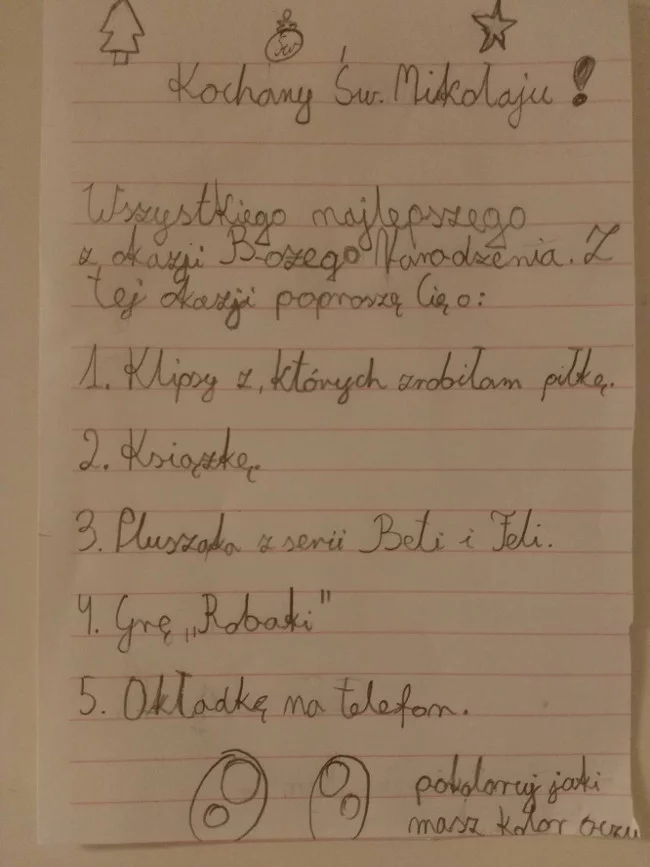 Św
Kochany Św. Mikołaju!
Wszystkiego najlepszego
z okazji Bożego Narodzenia. Z
tej okazji poproszę Cię o:
1. Klipsy z, których zrobiłam piłkę.
2. Książkę.
3. Pluszaka z serii Beti i Feli.
4. Grę „Robaki"
5. Okładkę na telefon.
pokoloruj jaki
masz kolor oczu